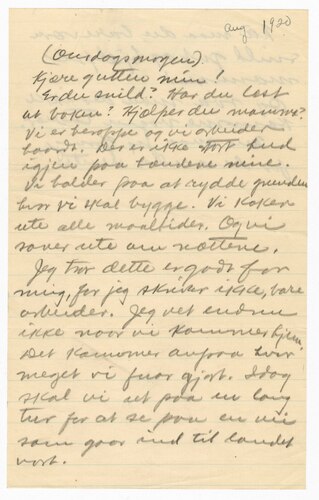 Aug 1920
(Onsdagsmorgen).
Kjære gutten min!
Er du snild? Har du læst
at boken? Hjælper du mamma?
Vi er heroppe og vi arbeider
haardt. Der er ikke stort hud
igjen paa hændene mine.
Vi holder paa at rydde grunden
hvor vi skal bygge. Vi koker
ute alle maaltider. Og vi
sover ute om nættene.
Jeg tror dette er godt for
mig, for jeg skriver ikke, bare
arbeider. Jeg vet endnu
ikke naar vi kommer hjem.
Det kommer an paa hvor
meget vi faar gjort. Idag
skal vi ut paa en lang
tur for at se paa en vei
som gaar ind til landet
vort.